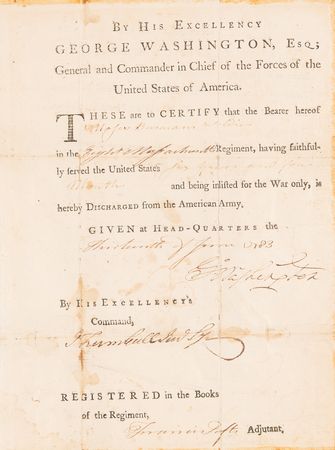 By His Excellency
GEORGE WASHINGTON, Esq;
General and Commander in Chief of the Forces of the
United States of America.
THESE are to CERTIFY that the Bearer hereof
in the Eight Massachusetts Regiment, having faithful-
ly served the United States
and being inlisted for the War only, is
hereby Discharged from the American Army.
GIVEN at Head-Quarters the
Thirteenth of June 1783
G Washington
By His Excellency's
Command,
J Trumbull Jun Sy
REGISTERED in the Books
of the Regiment,
Adjutant,